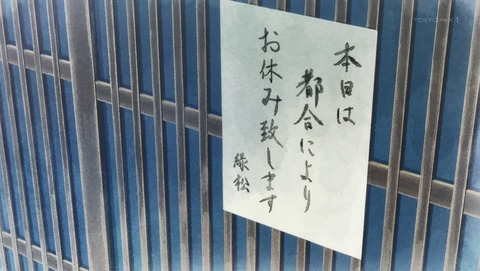 本日は
都合により
お休み致します
緑松
TOKYO MX 1